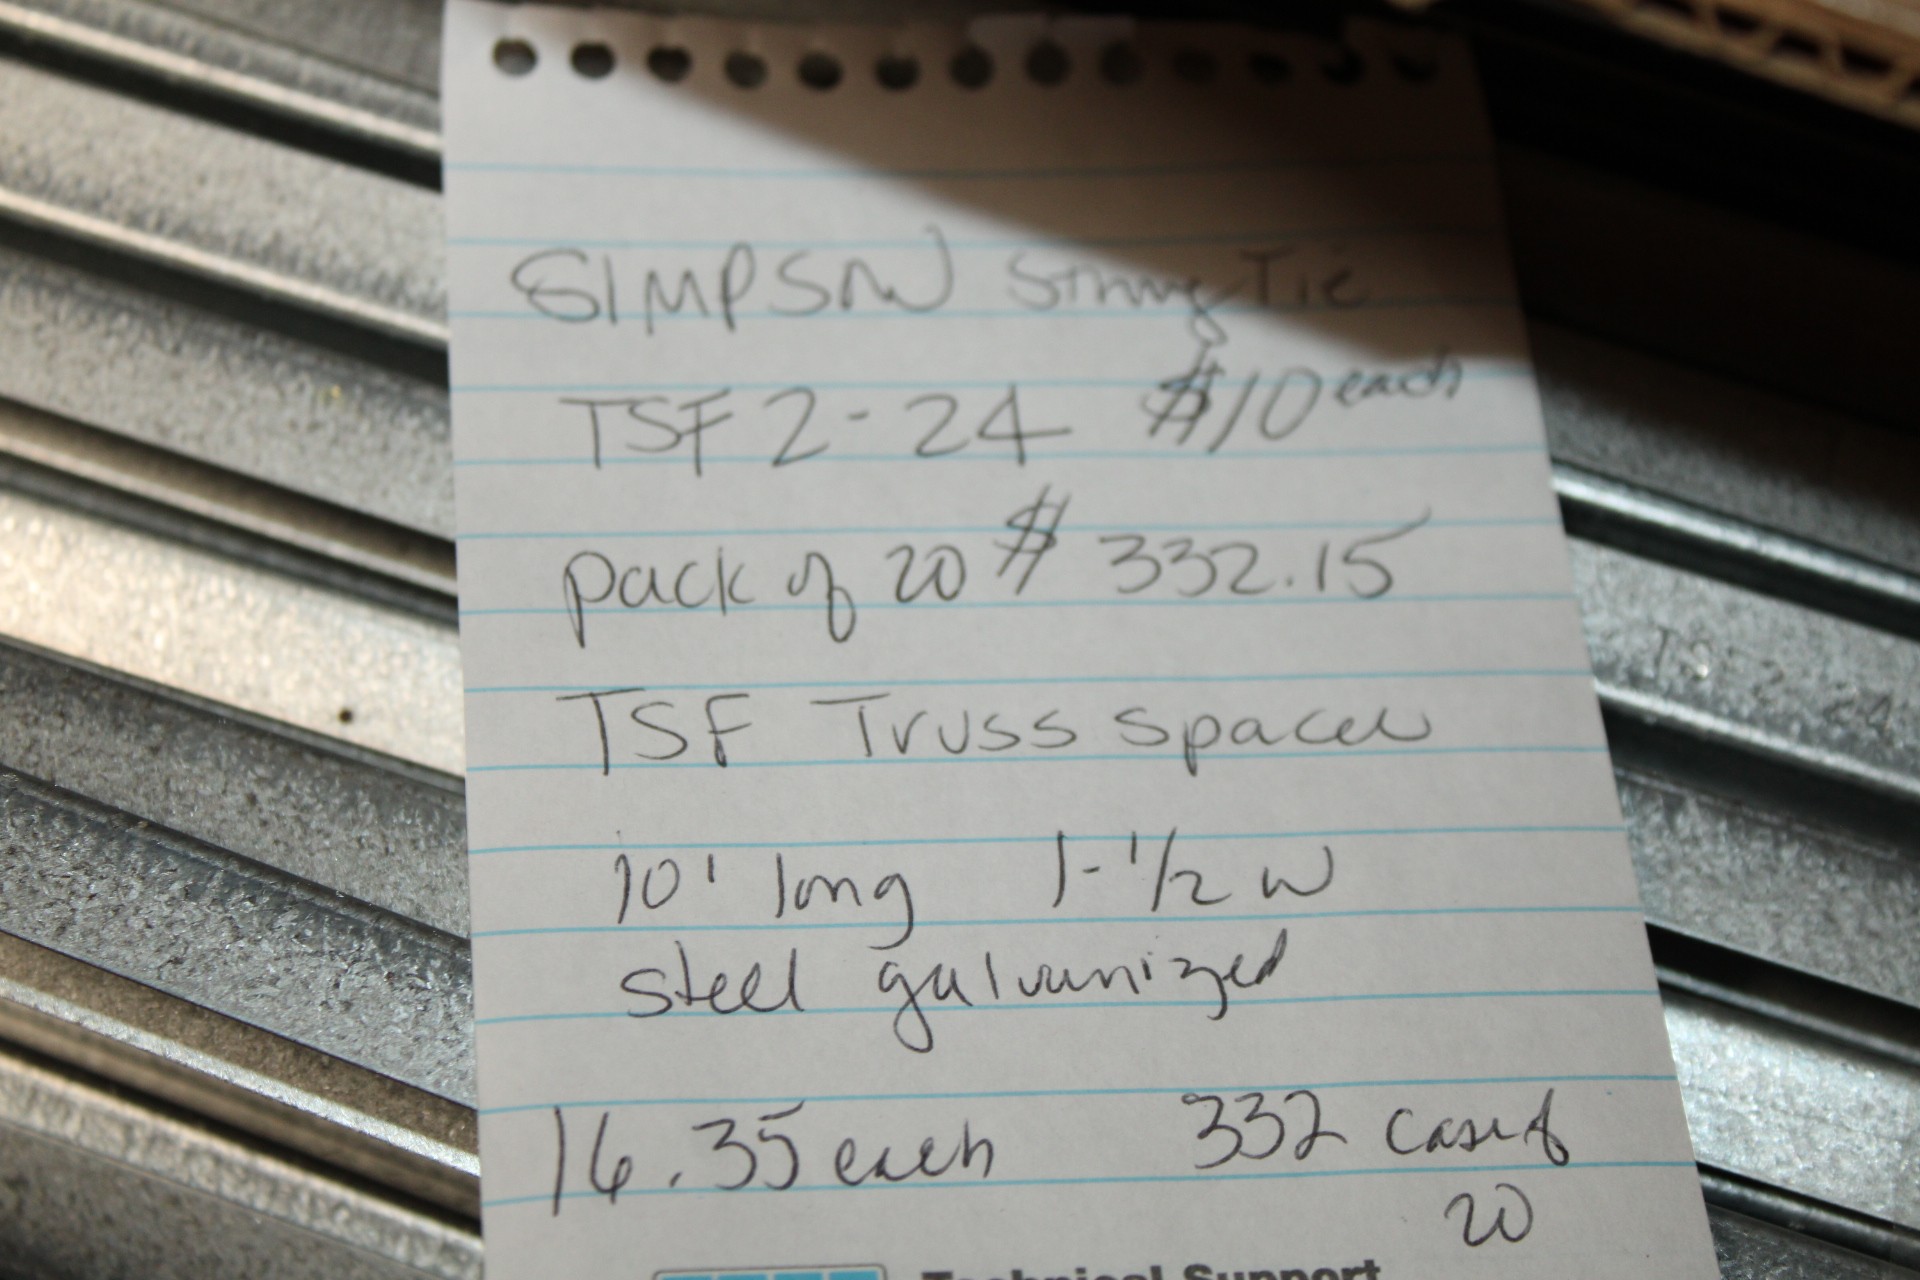 SIMPSON Strong Tie
TSF 2-24 $10 each
pack of 20 $ 332.15
TSF Truss spacer
10' long 1-1/2 w
steel galvanized
16.35 each 332 case of
20
Technical Support
TSF 2-24